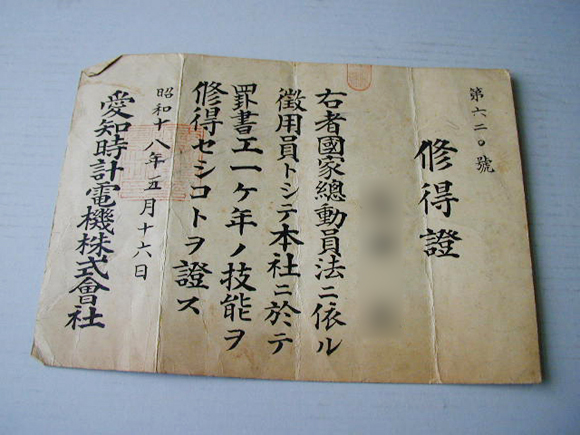 第六二〇號
修得證
右者國家總動員法ニ依ル
徴用員トシテ本社ニ於テ
罫書工一ケ年ノ技能ヲ
修得セシコトヲ證ス
昭和十八年五月十六日
愛知時計電機株式會社